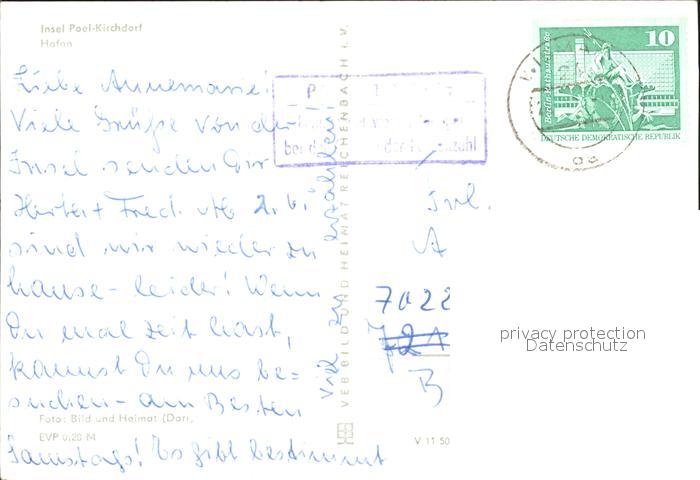 Insel Poel-Kirchdorf
Hafen
Liebe Annemarie!
Viele Grüße von der
Insel senden Dir
Herta + Fred. Ab 2. 6.
sind wir wieder zu
hause - leider! Wenn
Du mal Zeit hast,
kannst Du uns be=
suchen - am Besten
Foto: Bild und Heimat (Darr,
EVP 0,20 M
Samstags! Es gibt bestimmt
viel zu erzählen!
VEB BILD UND HEIMAT REICHENBACH i. V.
V 11 50
P
bei der
zahl
Berlin-Rathausstraße
10
DEUTSCHE DEMOKRATISCHE REPUBLIK
A
7022
B
privacy protection
Datenschutz